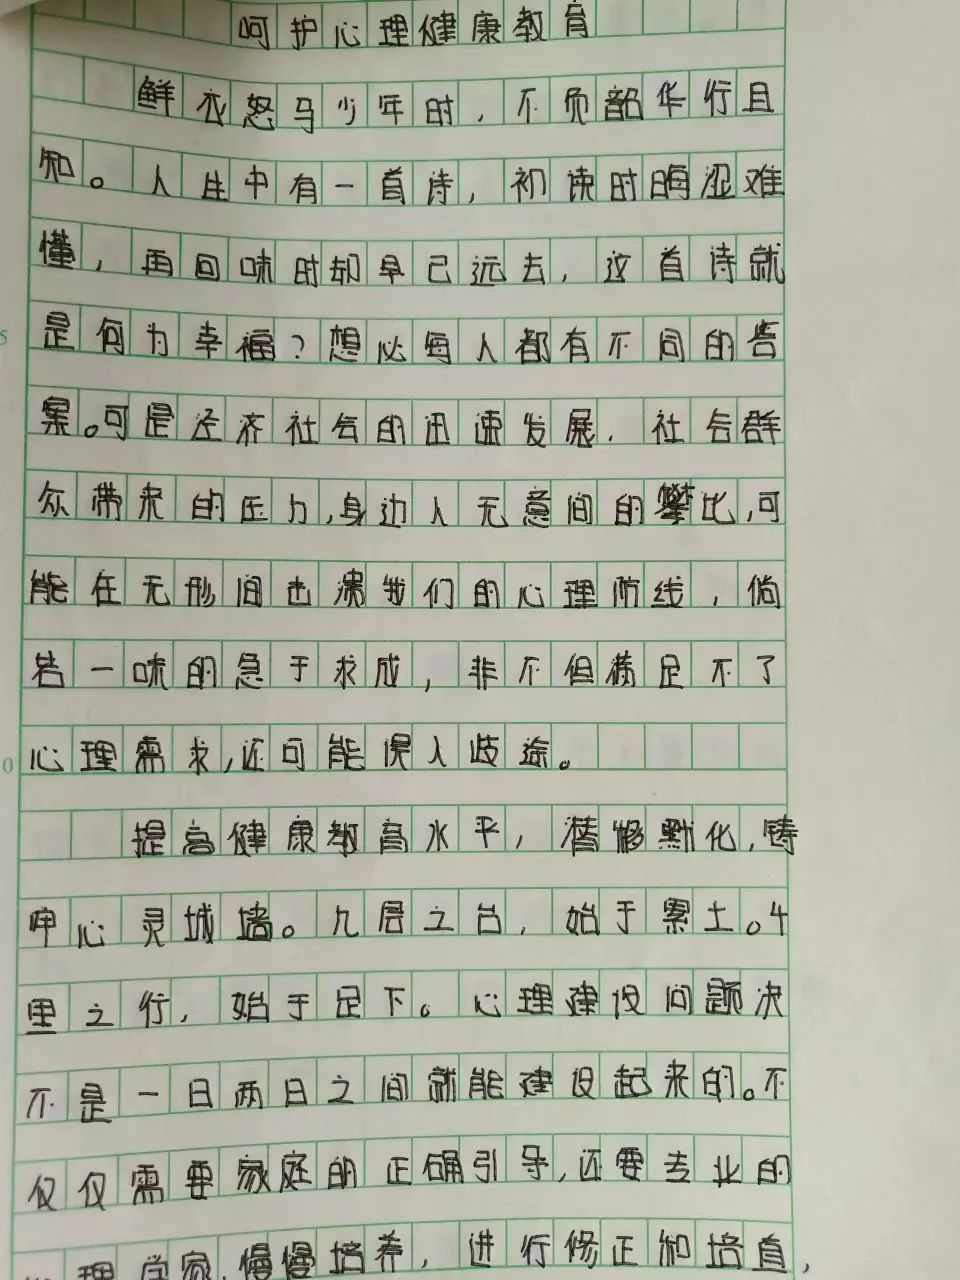 呵护心理健康教育
鲜衣怒马少年时，不负韶华行且
知。人生中有一首诗，初读时晦涩难
懂，再回味时却早已远去，这首诗就
是何为幸福？想必每人都有不同的答
案。可是经济社会的迅速发展．社会群
众带来的压力，身边人无意间的攀比，可
能在无形间击溃我们的心理防线，倘
若一味的急于求成，非不但满足不了
心理需求，还可能误人歧途。
提高健康教育水平，潜移默化，铸
牢心灵城墙。九层之台，始于累土。千
里之行，始于足下。心理建设问题决
不是一日两日之间就能建设起来的。不
仅仅需要家庭的正确引导，还要专业的
心理学家，慢慢培养，进行修正和培育，
5
0